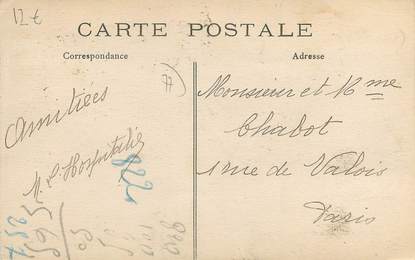 12€
CARTE POSTALE
Correspondance
Adresse
77
Amitiées
M. L. Hospitalié
Monsieur et Mme
Chabot
1 rue de Valois
Paris